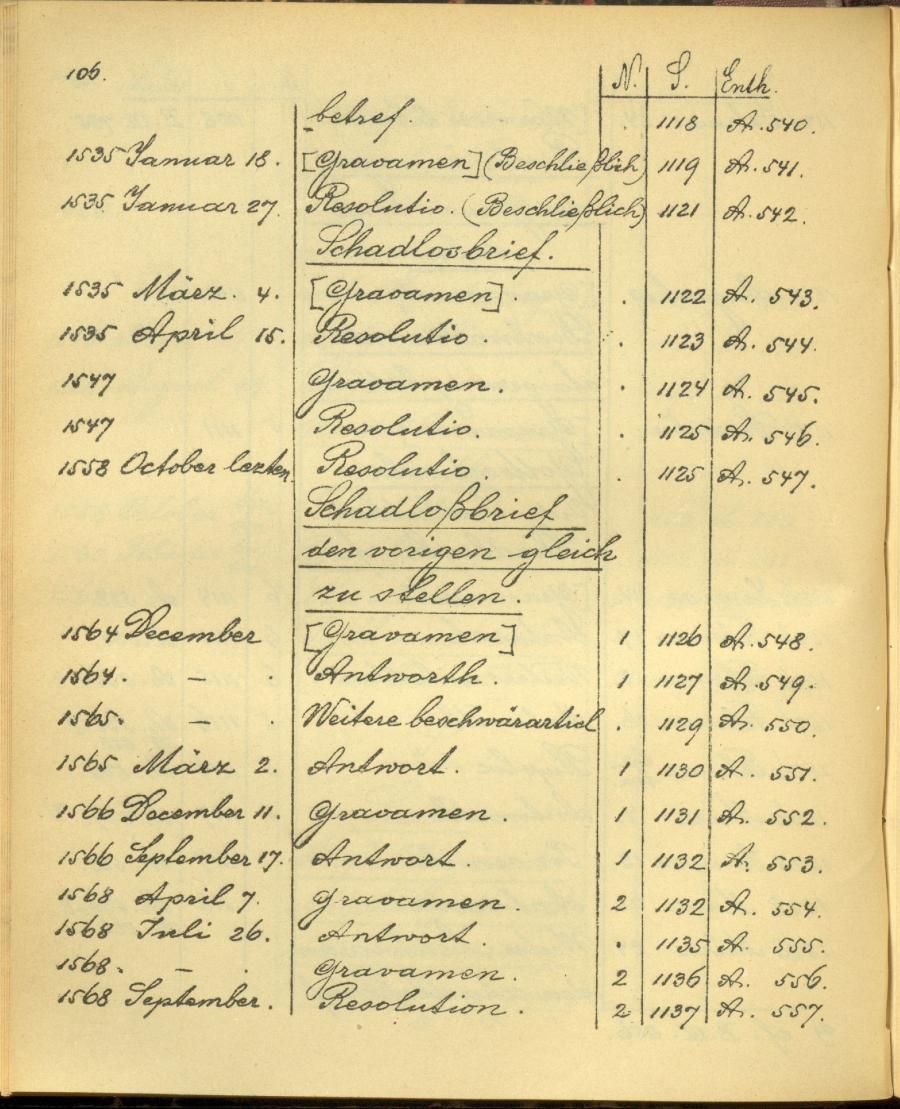 106.
N. S. Enth.
betref. . 1118 A. 540.
1535 Januar 18. [Gravamen] (Beschließlich) 1119 A. 541.
1535 Januar 27. Resolutio. (Beschließlich) 1121 A. 542.
Schadlosbrief.
1535 März. 4. [Gravamen]. . 1122 A. 543.
1535 April 15. Resolutio. . 1123 A. 544.
1547 Gravamen. . 1124 A. 545.
1547 Resolutio. . 1125 A. 546.
1558 October lezten. Resolutio. . 1125 A. 547.
Schadloßbrief
den vorigen gleich
zu stellen.
1564 December [Gravamen] 1 1126 A. 548.
1564. – . Antworth. 1 1127 A. 549.
1565. – . Weitere beschwärarticl . 1129 A. 550.
1565 März 2. Antwort. 1 1130 A. 551.
1566 December 11. Gravamen. 1 1131 A. 552.
1566 September 17. Antwort. 1 1132 A. 553.
1568 April 7. Gravamen. 2 1132 A. 554.
1568 Juli 26. Antwort. . 1135 A. 555.
1568. – . Gravamen. 2 1136 A. 556.
1568 September. Resolution. 2 1137 A. 557.